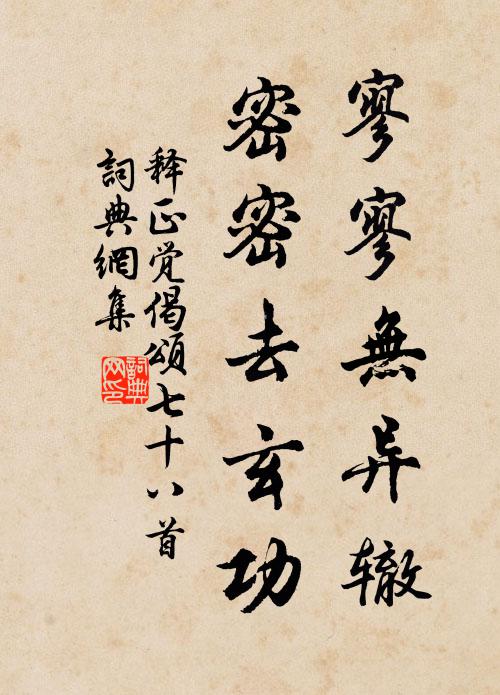 寥寥無异辙
密密去玄功
释正觉偈颂七十八首
詞典網集
詞典
网印